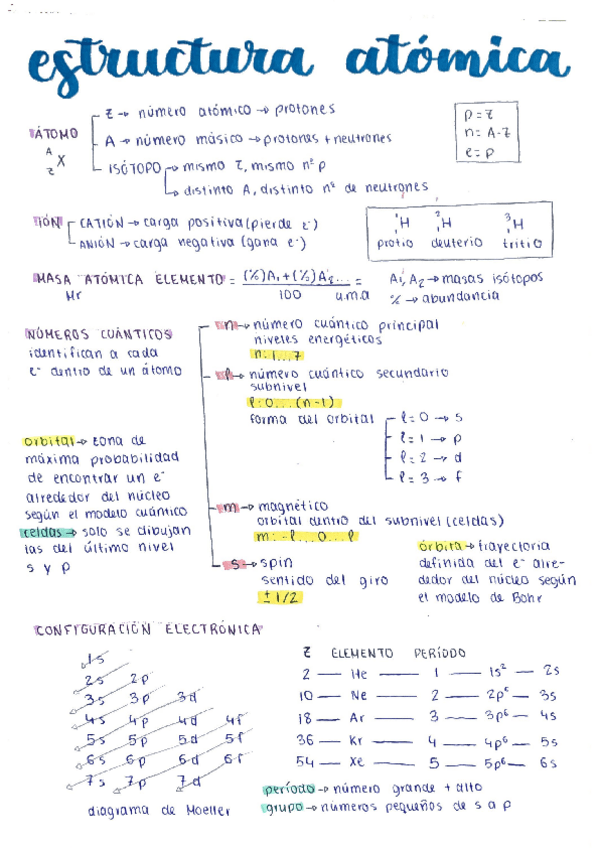 estructura atómica
Z → número atómico → protones
ÁTOMO
A
Z X
A → número másico → protones + neutrones
ISÓTOPO → mismo Z, mismo nº p
→ distinto A, distinto nº de neutrones
p = Z
n = A-Z
e = p
IÓN
CATIÓN → carga positiva (pierde e⁻)
ANIÓN → carga negativa (gana e⁻)
¹₁H ²₁H ³₁H
protio deuterio tritio
MASA ATÓMICA ELEMENTO = (%)A₁ + (%)A₂... =
Mr 100 u.m.a
A₁, A₂ → masas isótopos
% → abundancia
NÚMEROS CUÁNTICOS
identifican a cada
e⁻ dentro de un átomo
n → número cuántico principal
niveles energéticos
n: 1...7
l → número cuántico secundario
subnivel
l: 0...(n-1)
forma del orbital
l = 0 → s
l = 1 → p
l = 2 → d
l = 3 → f
orbital → zona de
máxima probabilidad
de encontrar un e⁻
alrededor del núcleo
según el modelo cuántico
celdas → solo se dibujan
las del último nivel
s y p
m → magnético
orbital dentro del subnivel (celdas)
m: -l...0...l
s → spin
sentido del giro
± 1/2
órbita → trayectoria
definida del e⁻ alre-
dedor del núcleo según
el modelo de Bohr
CONFIGURACIÓN ELECTRÓNICA
1s
2s 2p
3s 3p 3d
4s 4p 4d 4f
5s 5p 5d 5f
6s 6p 6d 6f
7s 7p 7d
diagrama de Moeller
Z ELEMENTO PERÍODO
2 — He — 1 — 1s² — 2s
10 — Ne — 2 — 2p⁶ — 3s
18 — Ar — 3 — 3p⁶ — 4s
36 — Kr — 4 — 4p⁶ — 5s
54 — Xe — 5 — 5p⁶ — 6s
período → número grande + alto
grupo → números pequeños de s a p